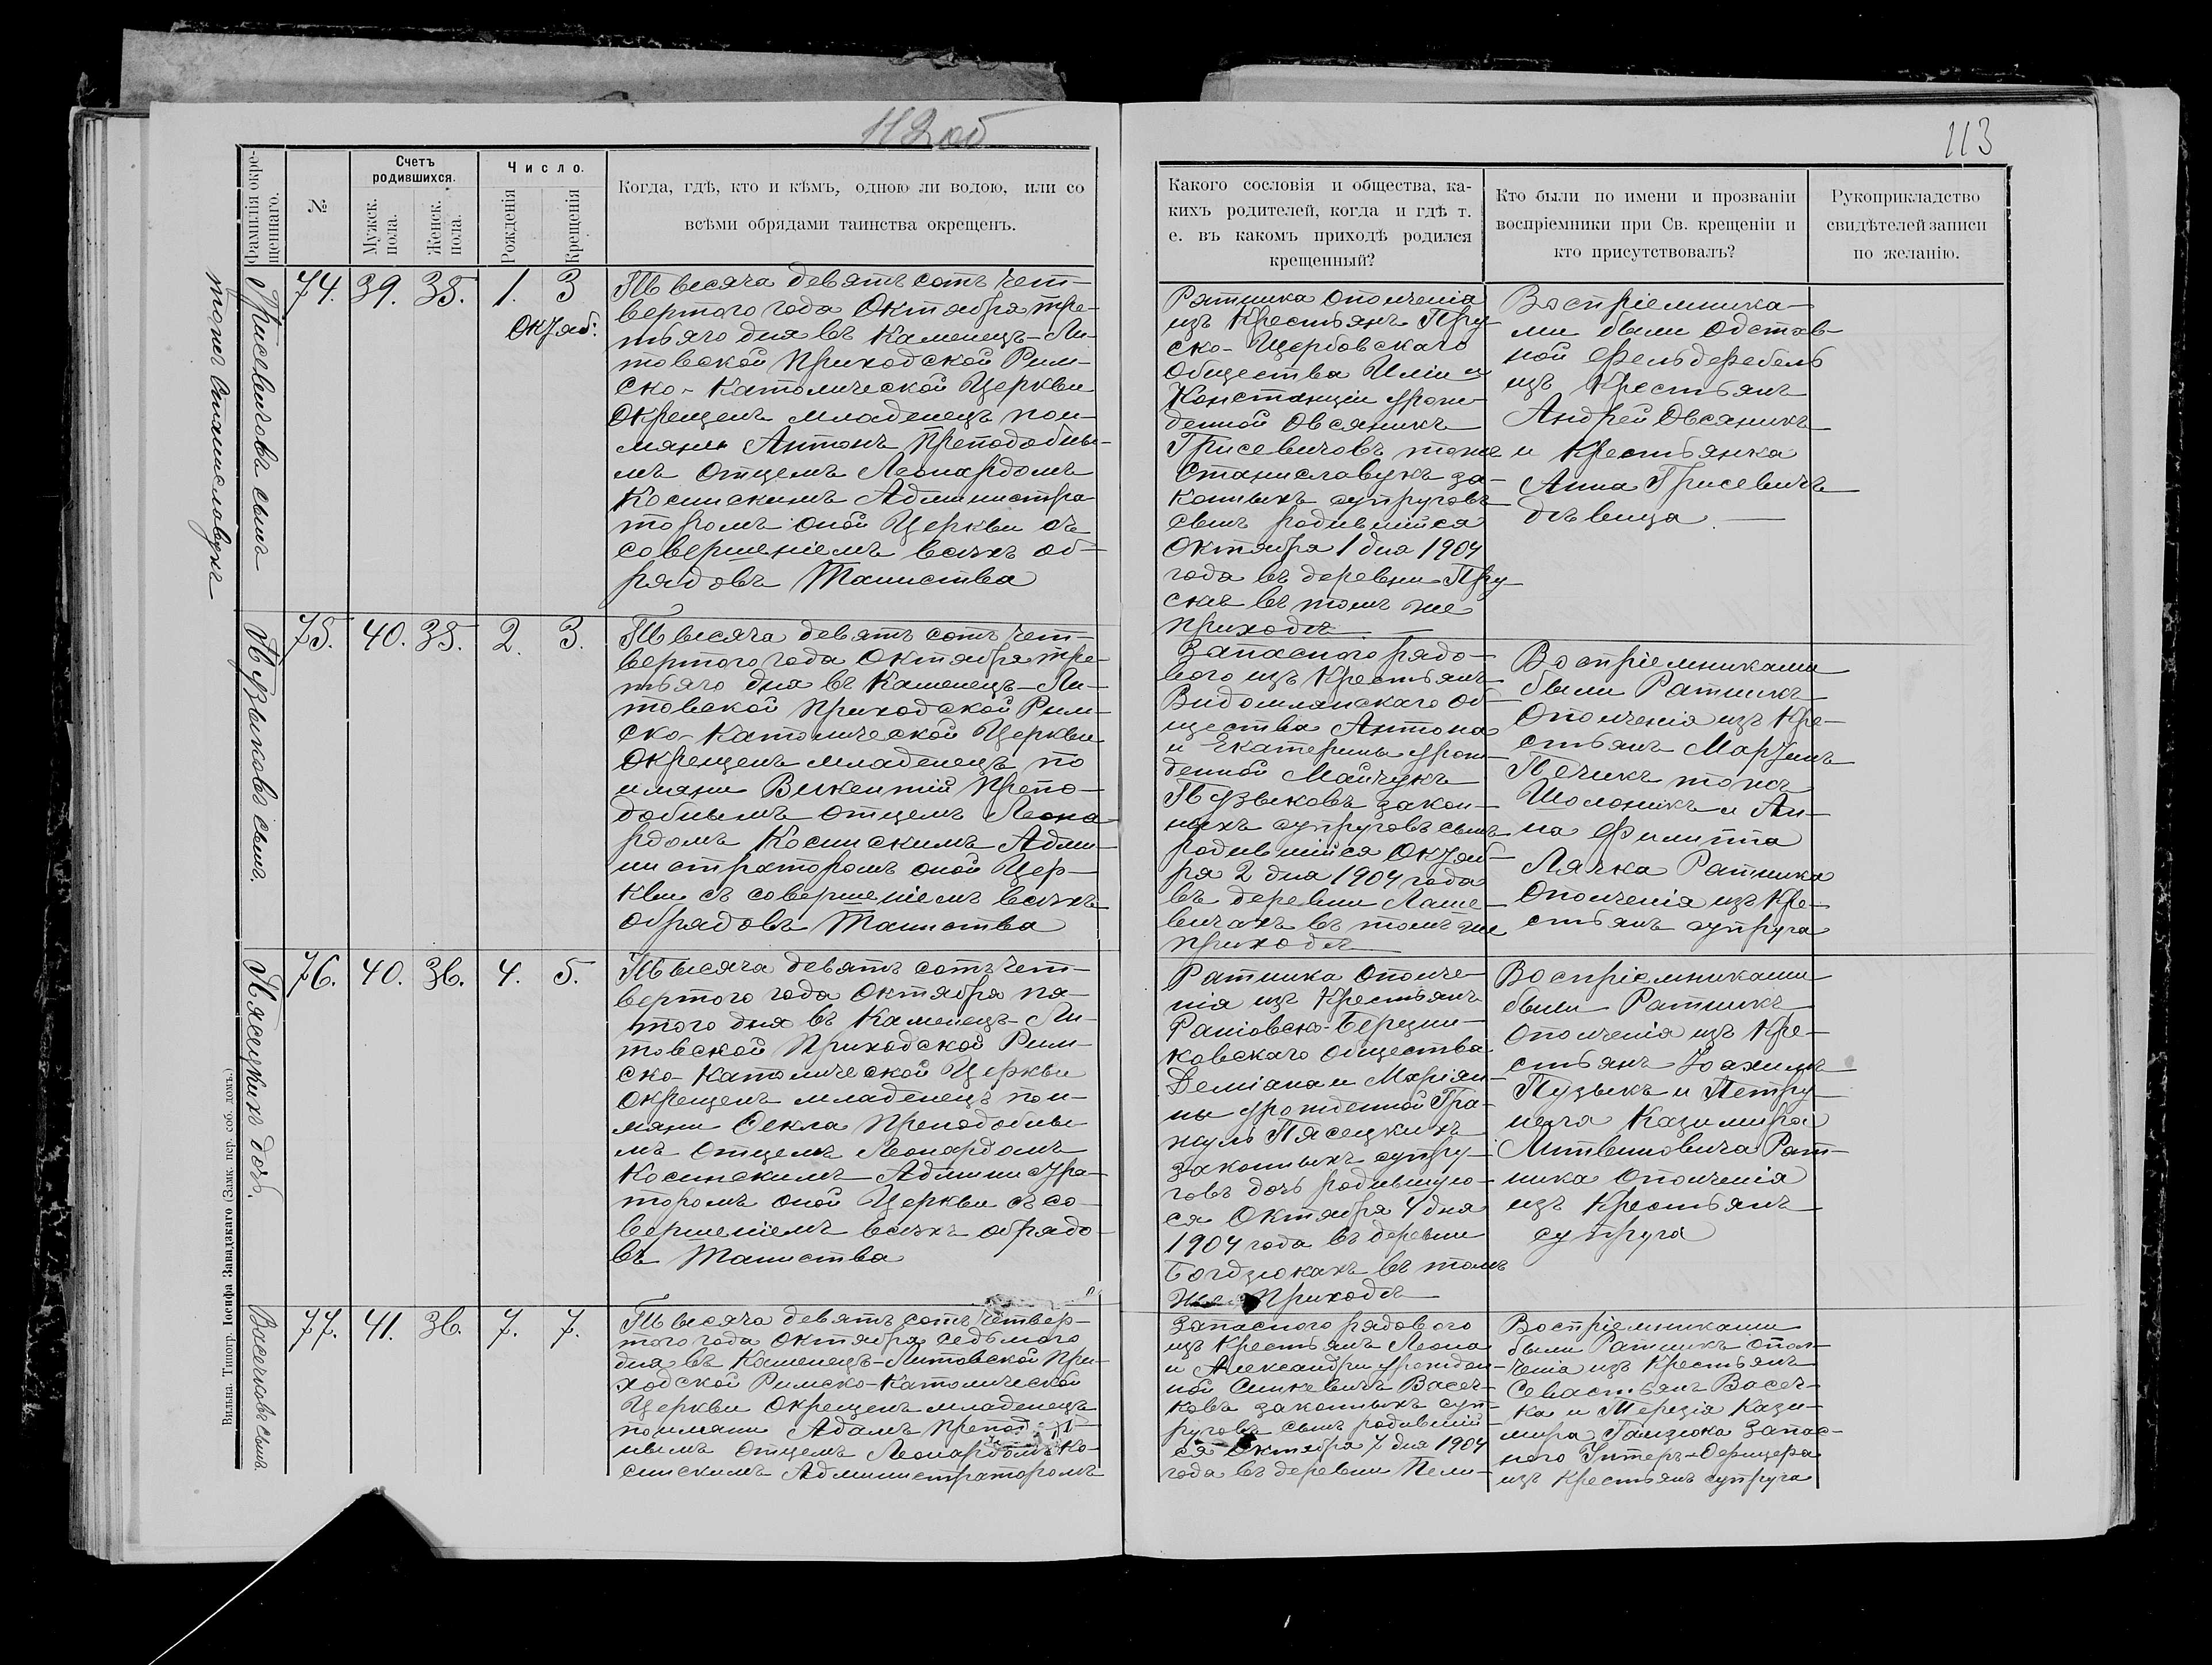 112 об
113
Фамилія и имя кре-
щеннаго.
№
Счетъ
родившихся.
Мужск.
пола.
Женск.
пола.
Число.
Рожденія
Крещенія
Когда, гдѣ, кто и кѣмъ, одною ли водою, или со
всѣми обрядами таинства окрещенъ.
Какого сословія и общества, ка-
кихъ родителей, когда и гдѣ т.
е. въ какомъ приходѣ родился
крещенный?
Кто были по имени и прозваніи
воспріемники при Св. крещеніи и
кто присутствовалъ?
Рукоприкладство
свидѣтелей записи
по желанію.
Грисевичовъ сынъ
тожъ Станиславукъ
74. 39. 35. 1. 3
Октяб:
Тысяча девятъ сотъ чет-
вертого года Октября тре-
тьяго дня въ Каменецъ-Ли-
товской Приходской Рим-
ско-Католической Церкви
Окрещенъ младенецъ по и-
мяни Антонъ Преподобны-
мъ Отцемъ Леонардомъ
Косинскимъ Администра-
торомъ оной Церкви съ
совершеніемъ всѣхъ об-
рядовъ Таинства
Ратника Ополченія
изъ Крестьянъ Пру-
ско-Щербовскаго
Общества Иліи и
Констанціи урож-
денной Овсяникъ
Грисевичовъ тожъ
Станиславукъ за-
конныхъ супруговъ
сынъ родившійся
Октября 1 дня 1904
года въ деревни Пру-
скѣ въ томъ же
приходѣ
Воспріемника-
ми были Отстав-
ной Фельдфебель
изъ Крестьянъ
Андрей Овсяникъ
и Крестьянка
Анна Грисевичъ
дѣвица.
Пузыковъ сынъ.
75. 40. 35. 2. 3.
Тысяча девятъ сотъ чет-
вертого года Октября тре-
тьяго дня въ Каменецъ-Ли-
товской Приходской Рим-
ско-Католической Церкви
Окрещенъ младенецъ по
имяни Викентій Препо-
добнымъ Отцемъ Леона-
рдомъ Косинскимъ Адми-
нистраторомъ оной Цер-
кви съ совершеніемъ всѣхъ
обрядовъ Таинства
Запасного рядо-
вого изъ Крестьянъ
Видомлянскаго Об-
щества Антона
и Екатерины урож-
денной Майчукъ
Пузыковъ закон-
ныхъ супруговъ сынъ
родившійся Октяб-
ря 2 дня 1904 года
въ деревни Лаше-
вичахъ въ томъ же
приходѣ
Воспріемниками
были Ратникъ
Ополченія изъ Кре-
стьянъ Мартинъ
Печикъ тожъ
Шолоникъ и Ан-
на Филиппа
Лячка Ратника
Ополченія изъ Кре-
стьянъ супруга
Пясецкихъ дочь.
76. 40. 36. 4. 5.
Тысяча девятъ сотъ чет-
вертого года Октября пя-
того дня въ Каменецъ-Ли-
товской Приходской Рим-
ско-Католической Церкви
Окрещенъ младенецъ по и-
мяни Ѳекла Преподобны
мъ Отцемъ Леонардомъ
Косинскимъ Администра-
торомъ оной Церкви съ со-
вершеніемъ всѣхъ обрядо-
въ Таинства
Ратника Ополче-
нія изъ Крестьянъ
Ковскаго Общества
Деміана и Маріан-
ны урожденной Гра-
Пясецкихъ
законныхъ супру-
говъ дочь родившую-
ся Октября 4 дня
1904 года въ деревни
Богдзюкахъ въ томъ
же Приходѣ
Воспріемниками
были Ратникъ
Ополченія изъ Кре-
стьянъ Іоахимъ
Пузыкъ и Петру-
неля Казимира
Литвиновича Рат-
ника Ополченія
изъ Крестьянъ
супруга
Васечковъ сынъ
77. 41. 36. 7. 7.
Тысяча девятъ сотъ четвер-
того года Октября седьмого
дня въ Каменецъ-Литовской При-
ходской Римско-Католической
Церкви Окрещенъ младенецъ
по имяни Адамъ Препод
нымъ Отцемъ Леонардомъ Ко-
синскимъ Администраторомъ
Запасного рядового
изъ Крестьянъ Леона
и Александры урожден-
ной Синкевичъ Васеч-
ковъ законныхъ суп-
руговъ сынъ родившій-
ся Октября 7 дня 1904
года въ деревни Пели-
Воспріемниками
были Ратникъ Опол-
ченія изъ Крестьянъ
Севастьянъ Васеч-
ка и Терезія Кази-
мира Гамзюка Запас-
ного Унтеръ-Офицера
изъ Крестьянъ супруга
Вильна. Типогр. Іосифа Завадзкаго (Замк. пер. соб. домъ.)